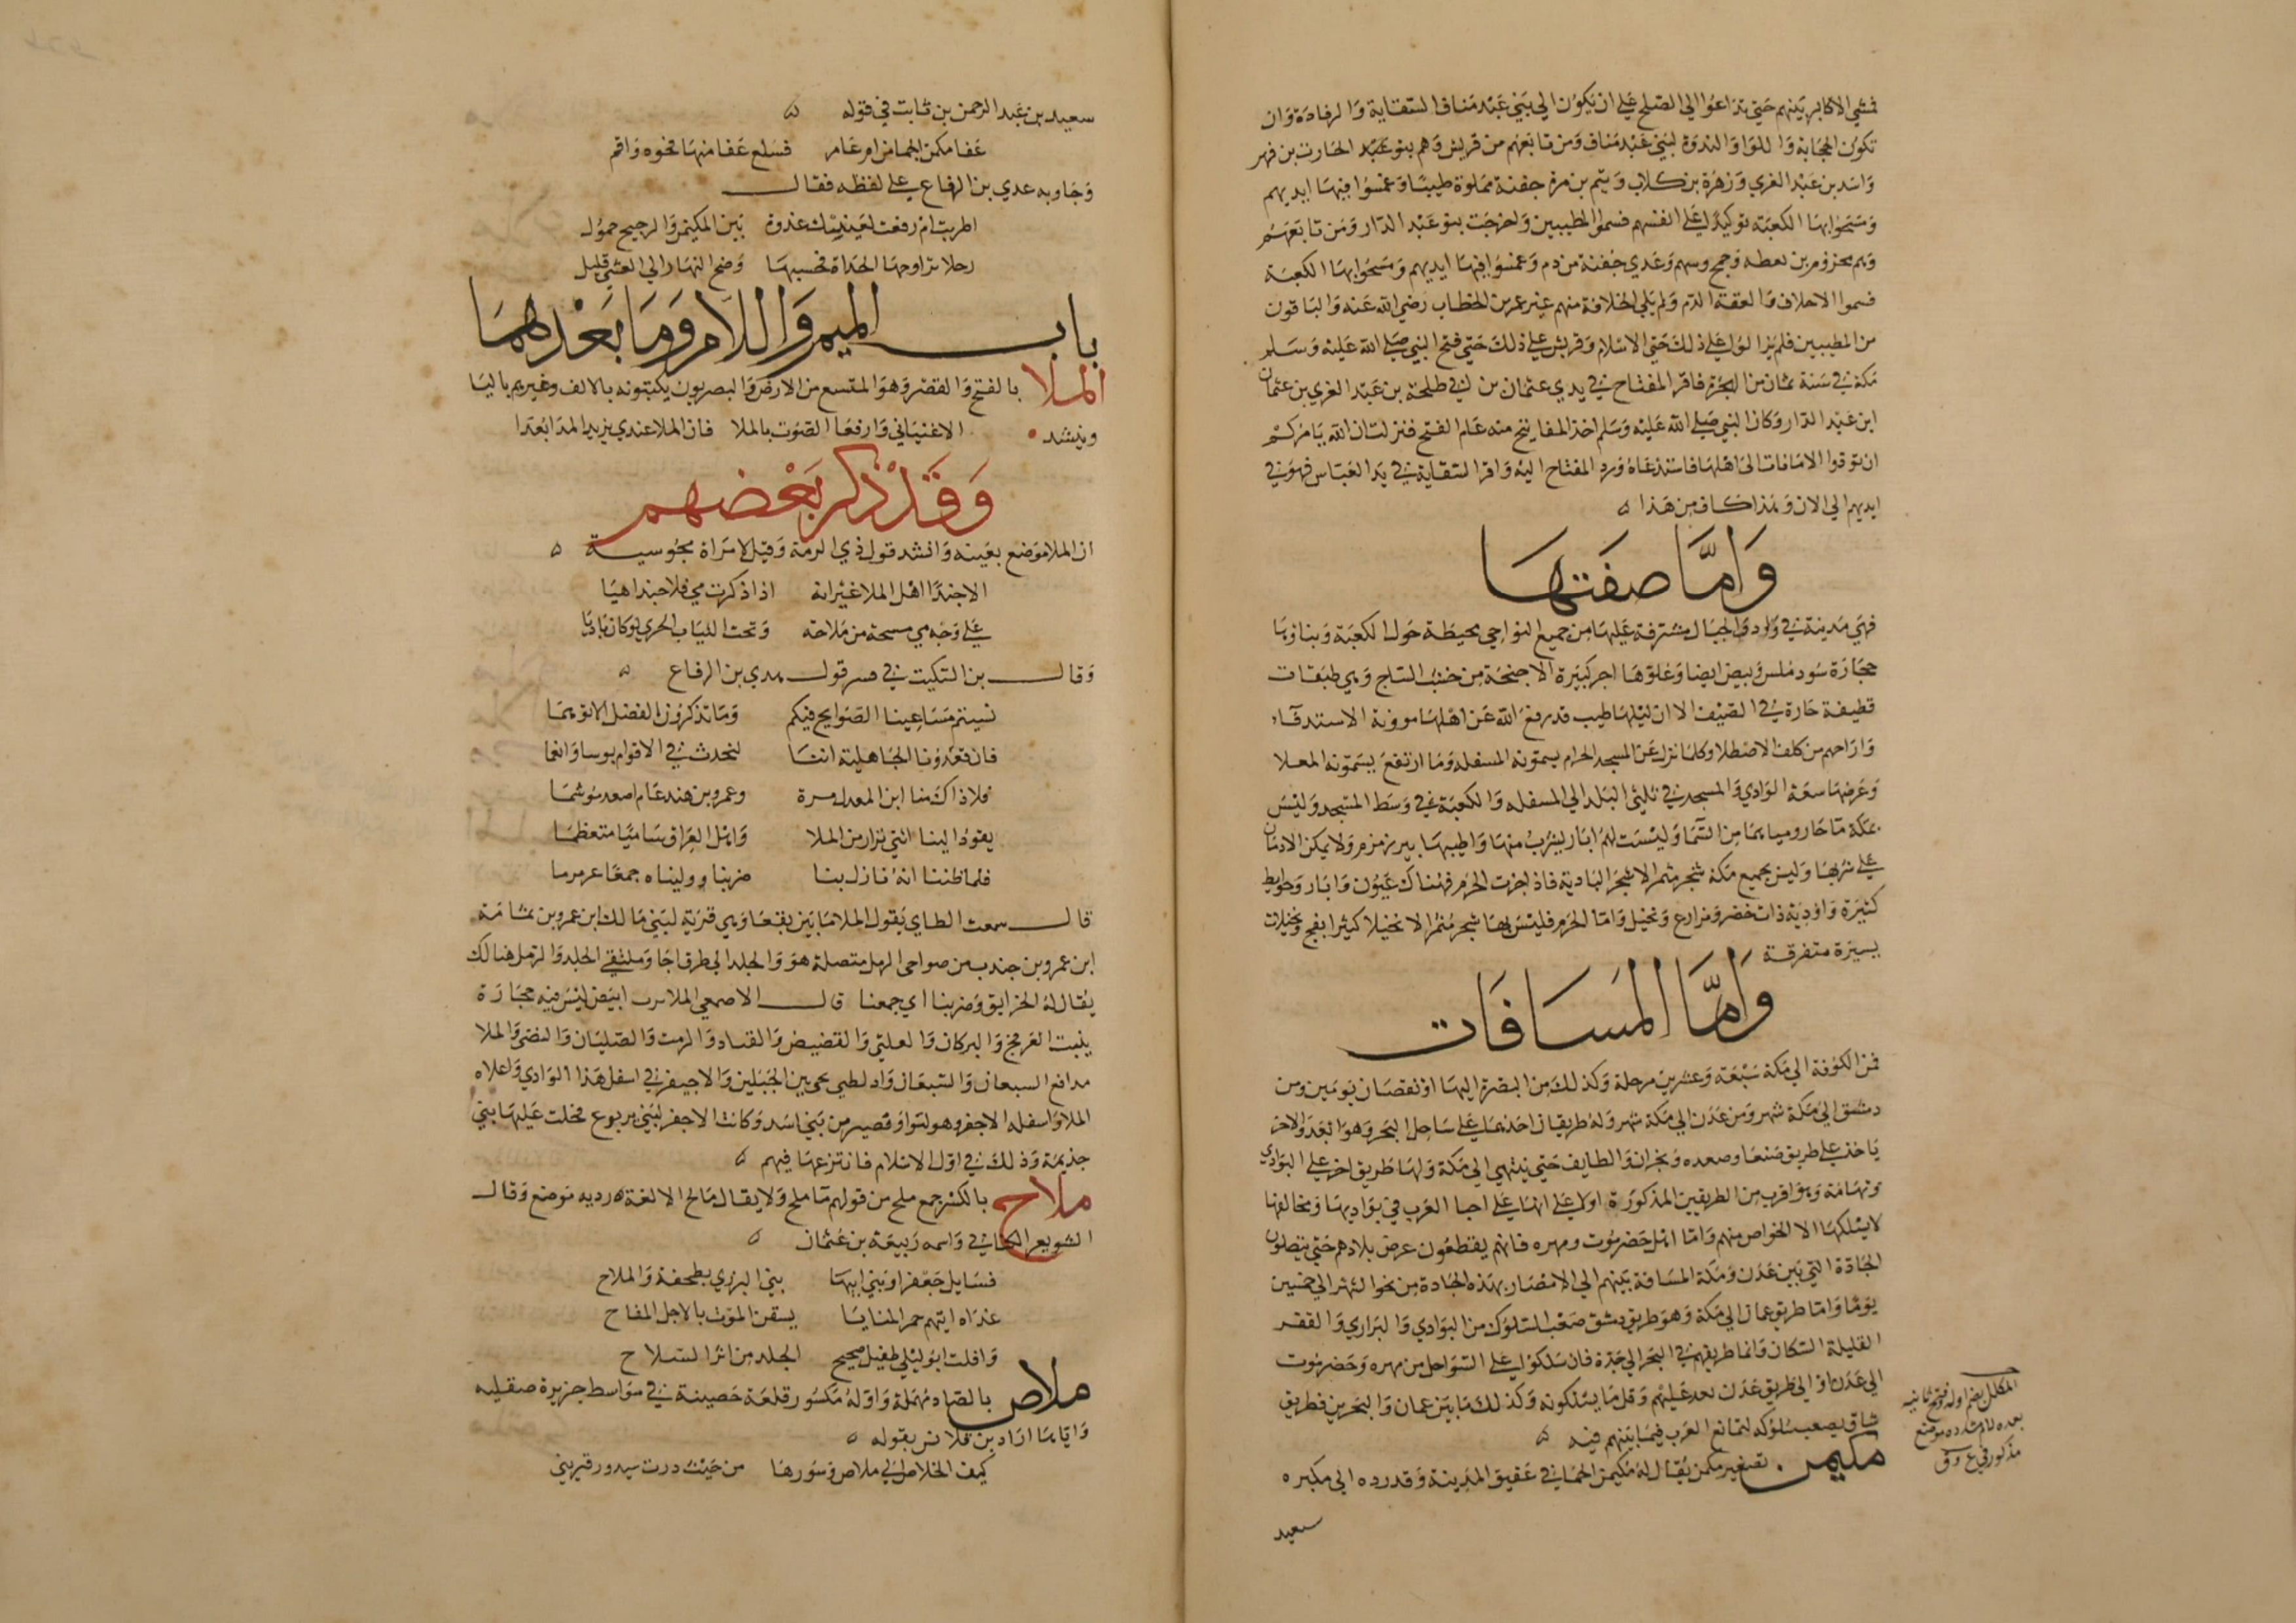 فمشي الاكابر بينهم حتي تداعوا الي الصلح علي ان يكون الي بني عبد مناف السقاية والرفادة وان
تكون الحجابة واللوا والندوة لبني عبد مناف ومن تابعهم من قريش وهم بنو عبد الحارث بن فهر
واسد بن عبد العزي وزهرة بن كلاب وتيم بن مرة جفنة مملوة طيبا وغمسوا فيها ايديهم
ومسحوا بها الكعبة توكيدا علي انفسهم فسموا المطيبين واخرجت بنو عبد الدار ومن تابعهم
وهم مخزوم بن يعطه وجمح وسهم وعدي جفنة من دم وغمسوا فيها ايديهم ومسحوا بها الكعبة
فسموا الاحلاف والعقة الدم ولم يلي الخلافة منهم غير عمر بن الخطاب رضي الله عنه والباقون
من المطيبين فلم يزالوا علي ذلك حتي الاسلام وقريش علي ذلك حتي فتح النبي صلي الله عليه وسلم
مكة في سنة ثمان من الهجرة فاقر المفتاح في يدي عثمان بن ابي طلحة بن عبد العزي بن عثمان
ابن عبد الدار وكان النبي صلي الله عليه وسلم اخذ المفاتيح منه عام الفتح فنزلت ان الله يامركم
ان تودوا الامانات الي اهلها فاستدعاه ورد المفتاح اليه واقر السقاية في يد العباس فهو في
ايديهم الي الان وهذا كاف من هذا ه
واما صفتها
فهي مدينة في واد والجبال مشرفة عليها من جميع النواحي محيطة حول الكعبة وبناوها
حجارة سود ملس وبيض ايضا وعلوها اجر كثيرة الاجنحة من خشب الساج وهي طبقات
قطيفة حارة في الصيف الا ان ليلها طيب قد رفع الله عن اهلها مؤونة الاستدفاء
واراحهم من كلف الاصطلا وكلما نزل عن المسجد الحرام يسمونه المسفلة وما ارتفع يسمونه المعلا
وعرضها سعة الوادي والمسجد في ثلثي البلد الي المسفله والكعبة في وسط المسجد وليس
بمكة ما جار ومياهها من السما وليست لهم ابار يشرب منها واطيبها بير زمزم ولا يمكن الادمان
علي شربها وليس بجميع مكة شجر مثمر الا شجر البادية فاذا جزت الحرم فهناك عيون وابار وحوايط
كثيرة واودية ذات خضر ومزارع ونخيل واما الحرم فليس بها شجر مثمر الا نخيلا كثيرا بفج ونخيلات
يسيرة متفرقة
واما المسافات
فمن الكوفة الي مكة سبعة وعشرين مرحلة وكذلك من البصرة اليها اونقصان يومين ومن
دمشق الي مكة شهر ومن عدن الي مكة شهر وله طريقان احدهما علي ساحل البحر وهو ابعد والاخر
ياخذ علي طريق صنعا وصعده ونجران والطايف حتي ينتهي الي مكة ولها طريق اخر علي البوادي
وتهامة وهو اقرب من الطريقين المذكورة اولا علي انها علي احيا العرب في بواديها ومخالفها
لا يسلكها الا الخواص منهم واما اهل حضرموت ومهره فانهم يقطعون عرض بلادهم حتي يتصلون
الجادة التي بين عدن ومكة المسافة بينهم الي الامصار بهذه الجادة من نحو الشهر الي خمسين
يوما واما طريق عمان الي مكة وهو طريق دمشق صعب السلوك من البوادي والبراري والقفر
القليلة السكان وانما طريقهم في البحر الي جدة فان سلكوا علي السواحل من مهره وحضرموت
الي عدن او الي طريق عدن بعد عليهم وقل ما يسلكونه وكذلك ما بين عمان والبحرين فطريق
شاق يصعب سلوكه لتمانع العرب فيما بينهم فيه ه
مكيمن تصغير مكمن يقال له مكيمن الجما في عقيق المدينة وقد رده الي مكبره
سعيد
المكلل بضم اوله وفتح ثانيه
بعده لام مشدده موضع
مذكور في
سعيد بن عبد الرحمن بن ثابت في قوله ه
عفا مكمن الجما من ام عامر فسلع عفا منها فحوه واقم
وجاوبه عدي بن الرقاع علي لفظه فقال
اطربت ام رفعت لعينيك غدوة بين المكيمن والرجيح حمول
رجلا تراوحها الحداة فحسبها وضح النهار الي العشي قليل
باب الميم واللام وما بعدهما
الملا بالفتح والقصر وهو المتسع من الارض والبصريون يكتبونه بالالف وغيرهم باليا
وينشد الا غنياني وارفعا الصوت بالملا فان الملا عندي يزيد المدا بعدا
وقد ذكر بعضهم
ان الملا موضع بعينه وانشد قول ذي الرمة وقيل لامراة مجوسية ه
الا حبذا اهل الملا غير انه اذا ذكرت مي فلا حبذا هيا
علي وجه مي مسحة من ملاحة وتحت الثياب الخزي لو كان باديا
وقال بن السكيت في قول عدي بن الرقاع ه
نسيتم مساعينا الصوالح فيكم وما تذكرون الفضل الا توهما
فان تعدونا الجاهلية اننا لنحدث في الاقوام بوسا وانعما
فلا ذاك منا ابن المعدل مرة وعمرو بن هند عام اصعد موشما
يقود الينا ابني نزار من الملا واهل العراق ساميا متعظما
فلما ظننا انه نازل بنا ضربنا ووليناه جمعا عرمرما
قال سمعت الطاي يقول الملا ما بين نقعا وهي قرية لبني مالك ابن عمرو بن ثمامة
ابن عمرو بن جندب من ضواحي الرمل متصلة هو والجلد الي طرق اجا وملتقي الجلد والرمل هنالك
يقال له الخرايق وضربنا اي جمعنا قال الاصمعي الملا برث ابيض ليس فيه حجارة
ينبت العرفج والبركان والعلقي والقضيض والقتاد والرمث والصليان والنصي والملا
مدافع السبعان والسبعان واد لطيى يجي بين الجبلين والاجيفر في اسفل هذا الوادي واعلاه
الملا واسفله الاجفر وهو لسواوة قصير من بني اسد وكانت الاجفر لبني يربوع فحلت عليها بني
جذيمة وذلك في اول الاسلام فانتزعها فيهم ه
ملاح بالكسر جمع ملح من قولهم ما ملح ولا يقال مالح الا لغة رديه موضع وقال
الشويعر الكناني واسمه ربيعة بن عثمان ه
فسايل جعفرا وبني ابيها بني البزري بطخفة والملاح
غداة اتيهم حمر المنايا يسقن الموت بالاجل المفاح
وافلت ابو ليلي طفيل صحيح الجلد من اثر السلاح
ملاص بالصاد مهملة واوله مكسور قلعة حصينة في سواسط جزيرة صقليه
واياها اراد بن قلانس بقوله ه
كيف الخلاص الي ملاص وسورها من حيث درت يدور قريني